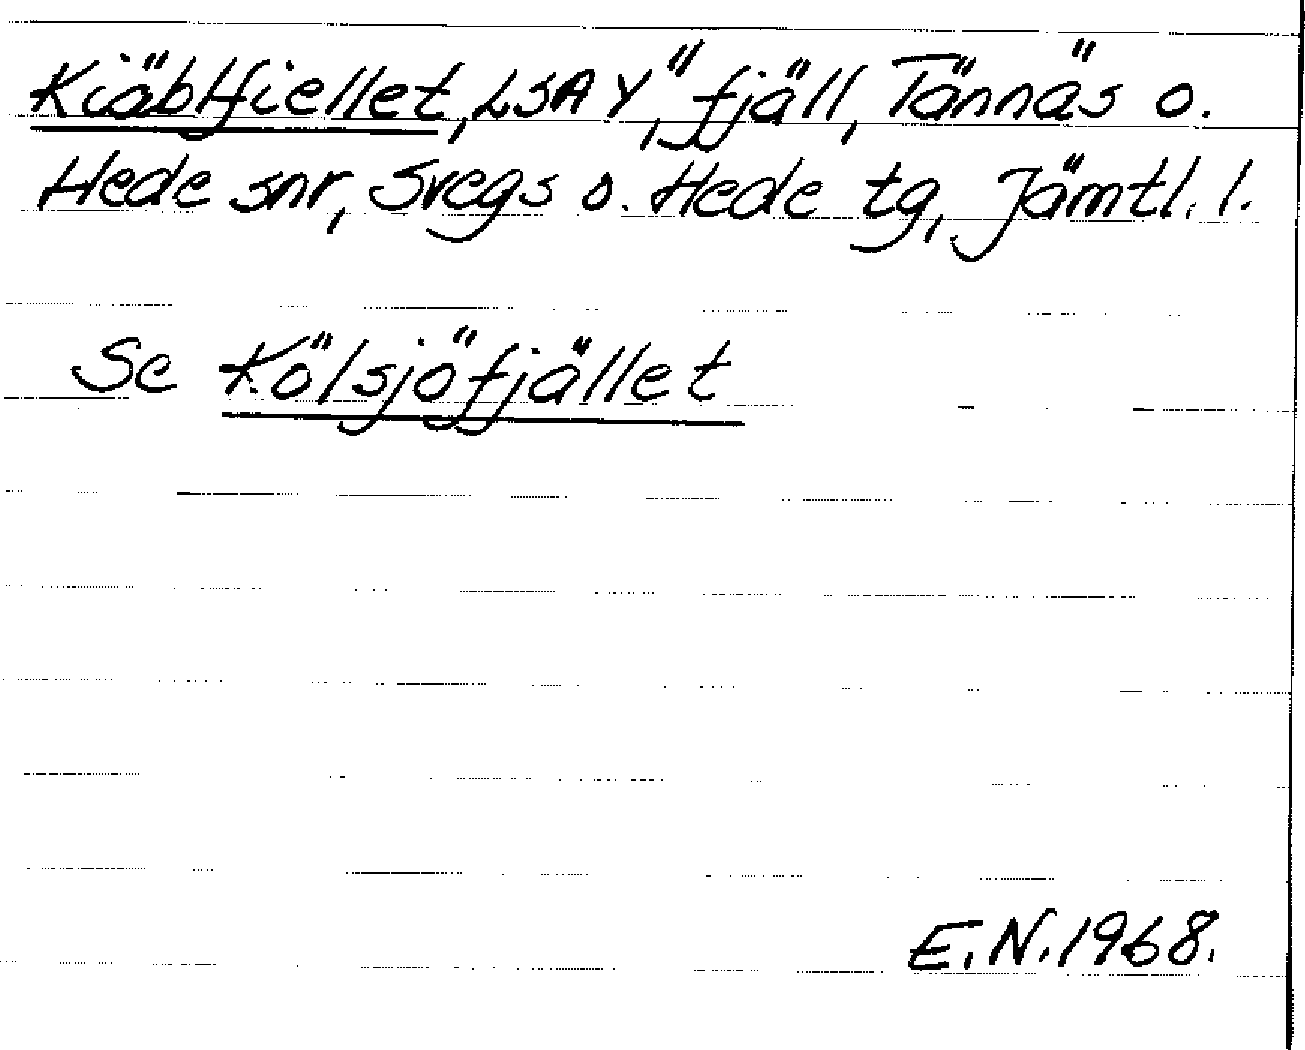 Kiäbtfiellet, LSA Y," fjäll, Tännäs o.
Hede snr, Svegs o. Hede tg, Jämtl. l.
Se Kölsjöfjället
E.N. 1968.